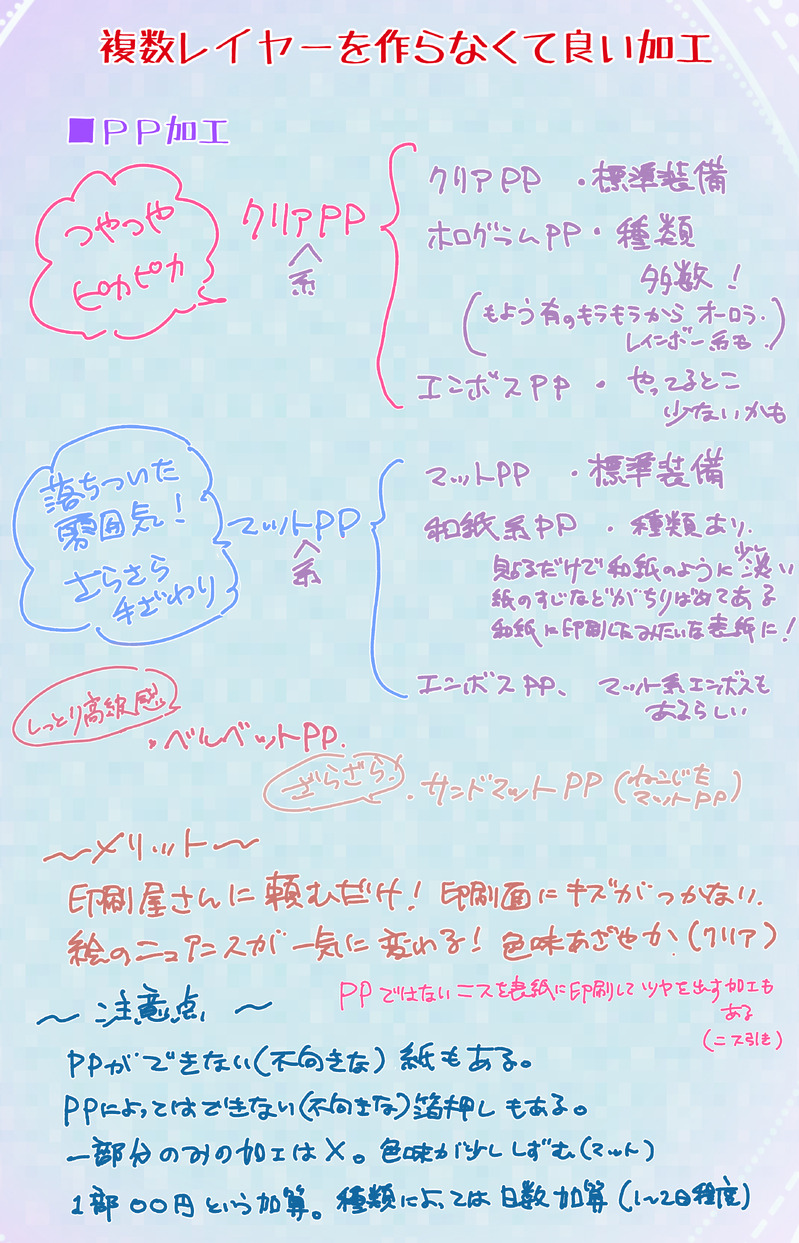 複数レイヤーを作らなくて良い加工
■PP加工
つやつや
ピカピカ
クリアPP
系
クリアPP ・標準装備
ホログラムPP・種類
多数!
(もよう有のキラキラから オーロラ.
レインボー系も.)
エンボスPP ・ やってるとこ
少ないかも
落ちついた
雰囲気!
さらさら
手ざわり
マットPP
系
マットPP ・標準装備
和紙系PP ・種類あり.
貼るだけで和紙のように少し淡い
紙のすじなどがちりばめてある
和紙に印刷したみたいな表紙に!
エンボスPP、 マット系エンボスも
あるらしい
しっとり高級感
・べルベットPP.
ざらざら!
・サンドマットPP(ねこじた
マットPP)
〜メリット〜
印刷屋さんに頼むだけ! 印刷面にキズがつかない.
絵のニュアンスが一気に変わる! 色味あざやか.(クリア)
PPではないニスを表紙に印刷してツヤを出す加工も
ある
(ニス引き)
〜 注意点 〜
PPができない(不向きな)紙もある。
PPによってはできない(不向きな)箔押しもある。
一部分のみの加工は×。色味が少ししずむ(マット)
1部○○円という加算。種類によっては日数加算(1〜2日程度)